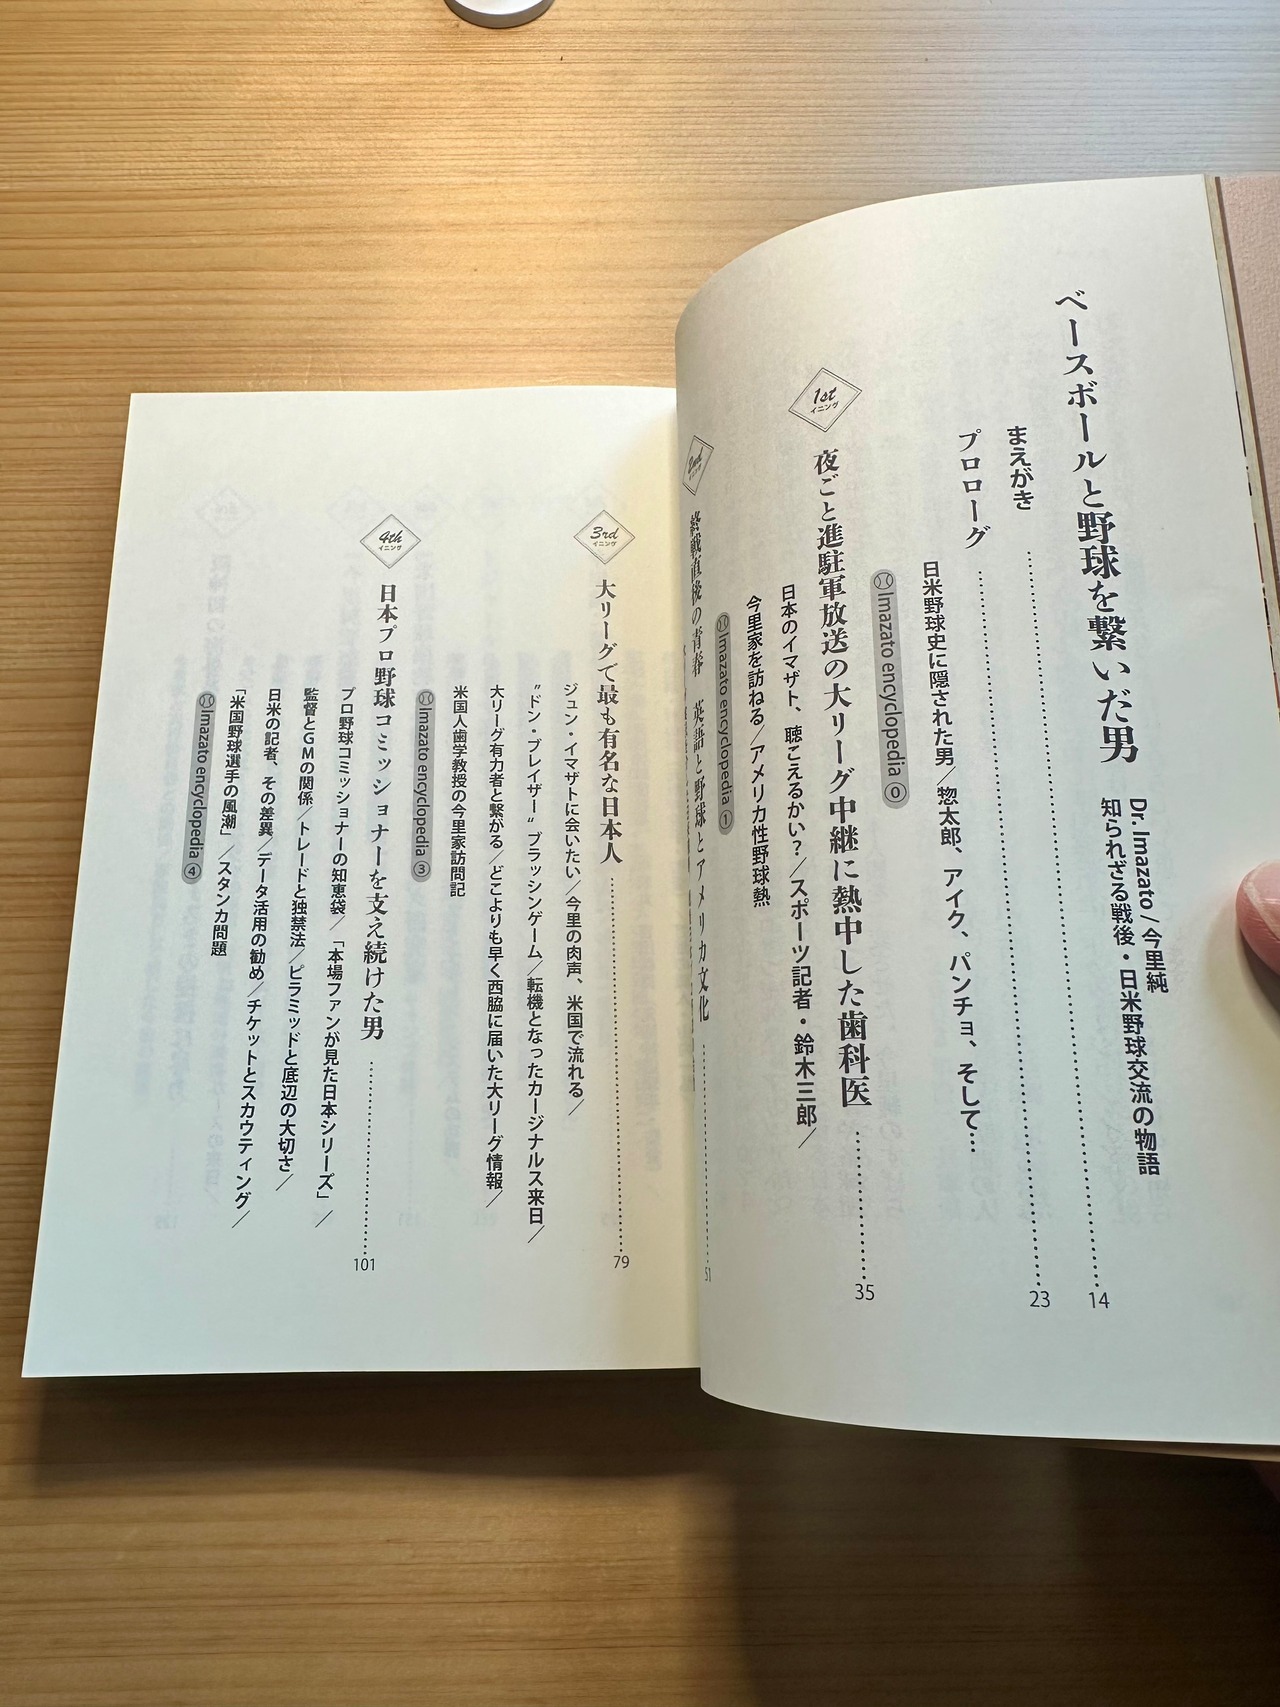 ベースボールと野球を繋いだ男
Dr. Imazato/今里純
知られざる戦後・日米野球交流の物語
まえがき 14
プロローグ 23
日米野球史に隠された男/惣太郎、アイク、パンチョ、そして…
Imazato encyclopedia ⓪
1st イニング
夜ごと進駐軍放送の大リーグ中継に熱中した歯科医 35
日本のイマザト、聴こえるかい?/スポーツ記者・鈴木三郎/
今里家を訪ねる/アメリカ性野球熱
Imazato encyclopedia ①
2nd イニング
終戦直後の青春 英語と野球とアメリカ文化 51
3rd イニング
大リーグで最も有名な日本人 79
ジュン・イマザトに会いたい/今里の肉声、米国で流れる/
“ドン・ブレイザー” ブラッシンゲーム/転機となったカージナルス来日/
大リーグ有力者と繋がる/どこよりも早く西脇に届いた大リーグ情報/
米国人歯学教授の今里家訪問記
Imazato encyclopedia ③
4th イニング
日本プロ野球コミッショナーを支え続けた男 101
プロ野球コミッショナーの知恵袋/「本場ファンが見た日本シリーズ」/
監督とGMの関係/トレードと独禁法/ピラミッドと底辺の大切さ/
日米の記者、その差異/データ活用の勧め/チケットとスカウティング/
「米国野球選手の風潮」/スタンカ問題
Imazato encyclopedia ④